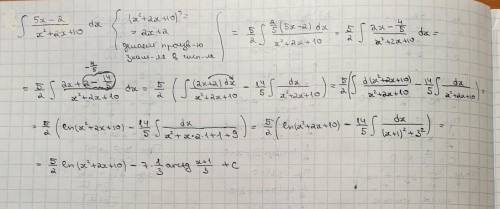 ∫ (5x-2)/(x²+2x+10) dx { (x²+2x+10)' = = 2x+2 делаем произв-ю знам-ля в числ-ле } = 5/2 ∫ (2/5 (5x-2) dx)/(x²+2x+10) = 5/2 ∫ (2x - 4/5)/(x²+2x+10) dx =
-4/5
= 5/2 ∫ (2x+2-14/5)/(x²+2x+10) dx = 5/2 ( ∫ ((2x+2)dx)/(x²+2x+10) - 14/5 ∫ dx/(x²+2x+10) ) = 5/2 ( ∫ d(x²+2x+10)/(x²+2x+10) - 14/5 ∫ dx/(x²+2x+10) ) =
= 5/2 ( ln(x²+2x+10) - 14/5 ∫ dx/(x²+x·2·1+1+9) ) = 5/2 ( ln(x²+2x+10) - 14/5 ∫ dx/((x+1)²+3²) ) =
= 5/2 ln(x²+2x+10) - 7·1/3 arctg (x+1)/3 + C